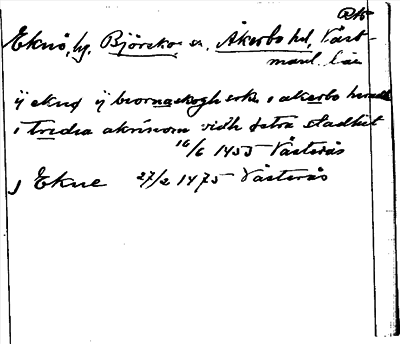 RA
Eknö, by, Björskog sn, Åkerbo hd, Väst-
manl. län
ij eknø ij biornaskogh sokn i akerbo heradh
i tridia akrinom vidh østra stadhit
16/6 1455 Västerås
j Ekne 27/2 1475 Västerås